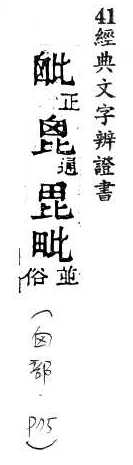 41 經典文字辨證書
𣬈正𣬉通毘毗並俗
(囟部.